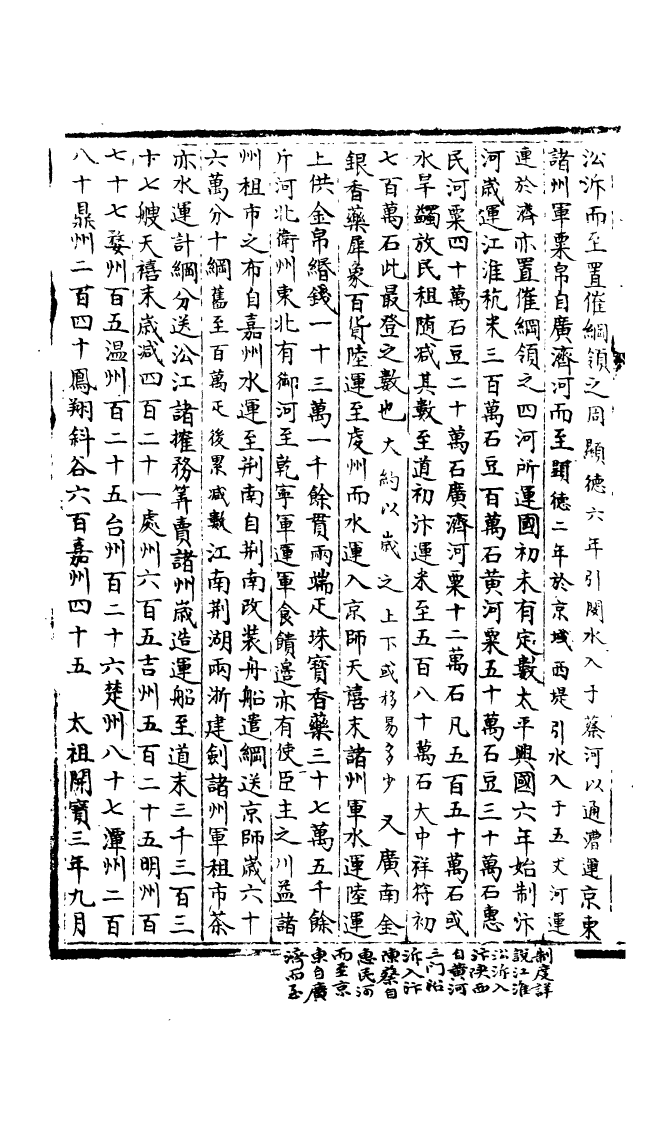 㳂泝而至置催綱領之周顯德六年引閔水入于蔡河以通漕運京東
諸州軍粟帛自廣濟河而至顯德二年於京城西堤引水入于五丈河運
連於濟亦置催綱領之四河所運國初未有定數太平興國六年始制汴
河歲運江淮秔米三百萬石豆百萬石黃河粟五十萬石豆三十萬石惠
民河粟四十萬石豆二十萬石廣濟河粟十二萬石凡五百五十萬石或
水旱蠲放民租隨減其數至道初汴運米至五百八十萬石大中祥符初
七百萬石此最登之數也大約以歲之上下或移易多少又廣南金
銀香藥犀象百貨陸運至虔州而水運入京師天禧末諸州軍水運陸運
上供金帛緡錢一十三萬一千餘貫兩端疋珠寶香藥三十七萬五千餘
斤河北衛州東北有御河至乾寧軍運軍食饋邊亦有使臣主之川益諸
州租市之布自嘉州水運至荊南自荊南改裝舟船遣綱送京師歲六十
六萬分十綱舊至百萬疋後累減數江南荊湖兩浙建劍諸州軍租市茶
亦水運計綱分送㳂江諸搉務筭賣諸州歲造運船至道末三千三百三
十七艘天禧末歲減四百二十一處州六百五吉州五百二十五明州百
七十七婺州百五温州百二十五台州百二十六楚州八十七潭州二百
八十鼎州二百四十鳳翔斜谷六百嘉州四十五　太祖開寶三年九月
制度詳
說江淮
㳂泝入
汴陝西
自黃河
三門㳂
泝入汴
陳蔡自
惠民河
而至京
東自廣
濟而至